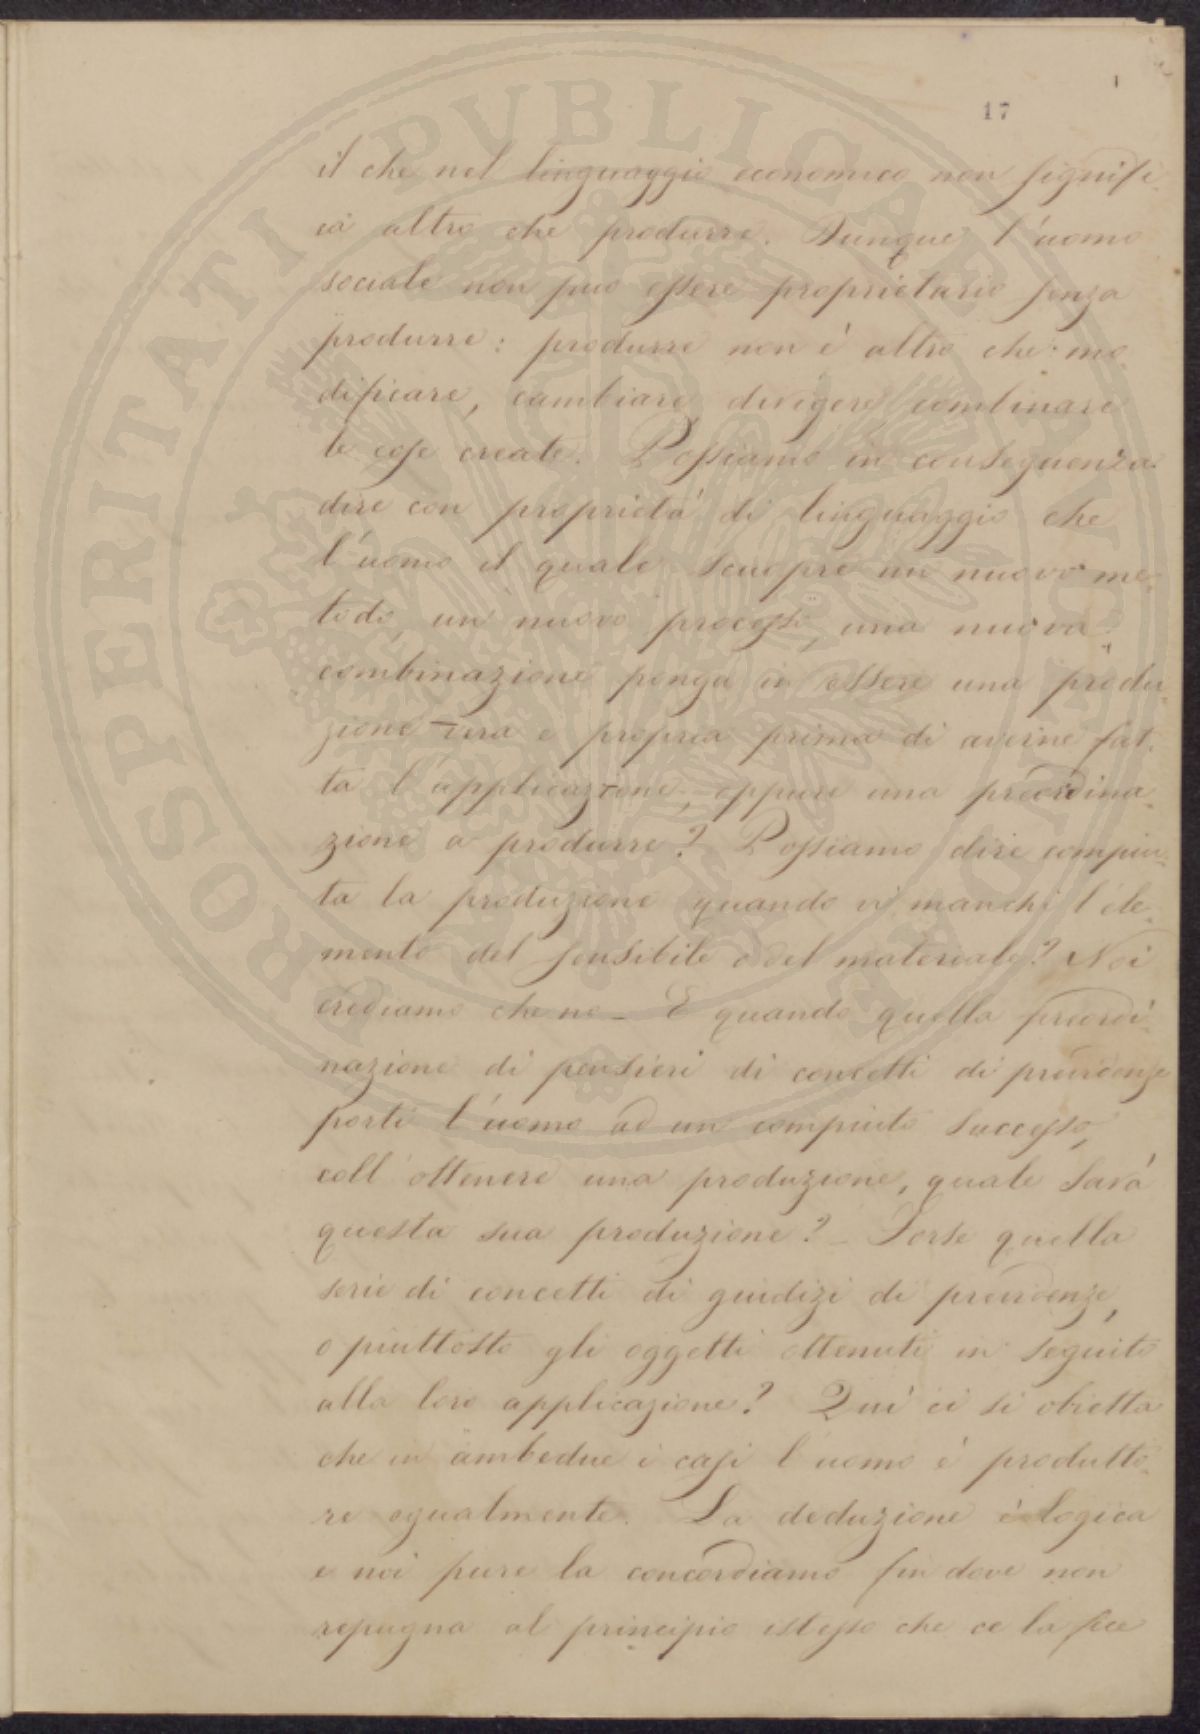 17
il che nel linguaggio economico non signifi-
ca altro che produrre. Dunque l'uomo
sociale non può essere proprietario senza
produrre: produrre non è altro che mo-
dificare, cambiare, dirigere combinare
le cose create. Possiamo in conseguenza
dire con proprietà di linguaggio che
l'uomo il quale scuopre un nuovo me-
todo, un nuovo processo, una nuova
combinazione ponga in essere una produ-
zione vera e propria prima di averne fat-
ta l'applicazione, oppure una preordina-
zione a produrre? Possiamo dire compiu-
ta la produzione quando vi manchi l'ele-
mento del sensibile o del materiale? Noi
crediamo che no_ E quando quella preordi-
nazione di pensieri di concetti di previdenze
porti l'uomo ad un compiuto successo,
coll'ottenere una produzione, quale sarà
questa sua produzione?_ Forse quella
serie di concetti di giudizi di previdenze,
o piuttosto gli oggetti ottenuti in seguito
alla loro applicazione? Quì ci si obietta
che in ambedue i casi l'uomo è produtto-
re egualmente. La deduzione è logica
e noi pure la concordiamo fin dove non
repugna al principio istesso che ce la fece
PROSPERITATI PVBLICAE AVGENDAE